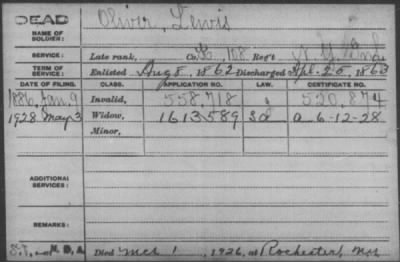 DEAD
NAME OF SOLDIER: Oliver, Lewis
SERVICE: Late rank, Co. G, 108 Reg't N.Y. Inf.
TERM OF SERVICE: Enlisted Aug 8, 1862 Discharged Apl. 25, 1863
DATE OF FILING. CLASS. APPLICATION NO. LAW. CERTIFICATE NO.
1886, Jan. 9 Invalid, 558,718 520,874
1928 May 3 Widow, 1613,589 3d a-6-12-28
Minor,
ADDITIONAL SERVICES:
REMARKS:
Died Mch 1, 1926, at Rochester,